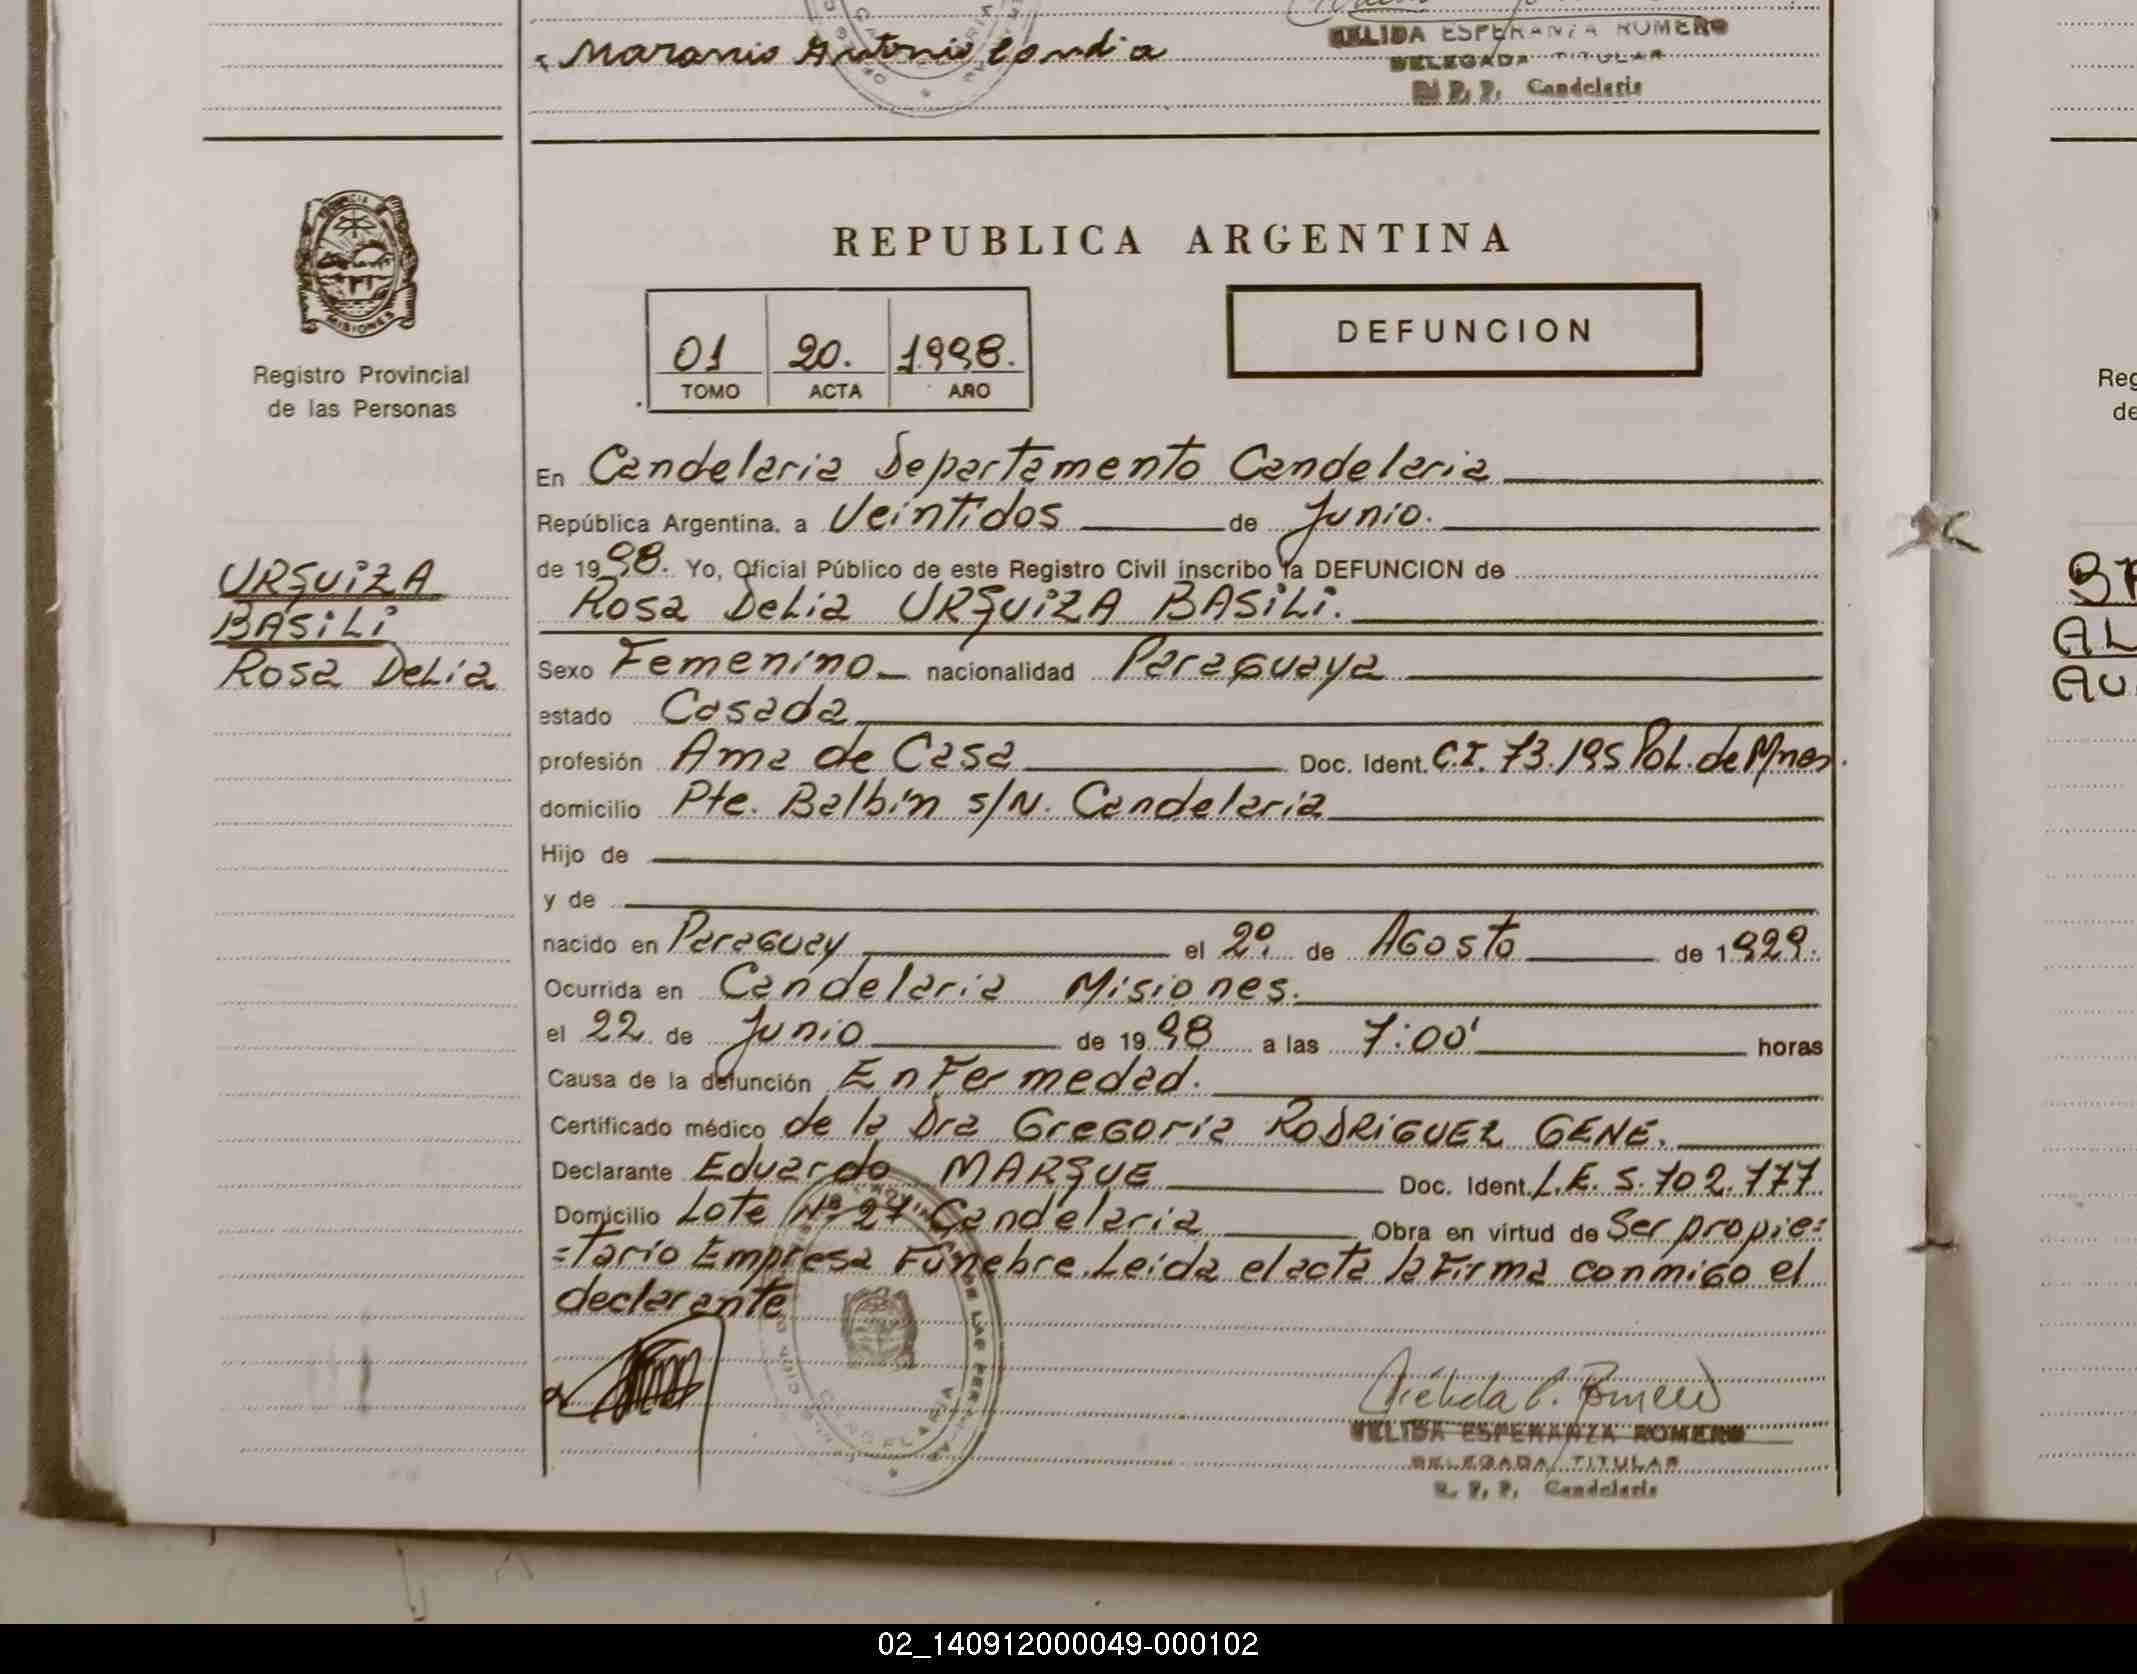 Maranio Antonio Candia
NELIDA ESPERANZA ROMERO
DELEGADA TITULAR
R. P. P. Candelaria
MISIONES
Registro Provincial
de las Personas
REPUBLICA ARGENTINA
01 20. 1998.
TOMO ACTA AÑO
DEFUNCION
En Candelaria Departamento Candelaria
República Argentina, a Veintidos de Junio.
de 1998. Yo, Oficial Público de este Registro Civil inscribo la DEFUNCION de
Rosa Delia URQUIZA BASILI.
URQUIZA
BASILI
Rosa Delia
Sexo Femenino nacionalidad Paraguaya
estado Casada
profesión Ama de Casa Doc. Ident. C.I. 73.195 Pol. de Mnes.
domicilio Pte. Balbin s/N. Candelaria
Hijo de
y de
nacido en Paraguay el 2º. de Agosto de 1929.
Ocurrida en Candelaria Misiones.
el 22 de Junio de 1998 a las 7:00' horas
Causa de la defunción Enfermedad.
Certificado médico de la Dra Gregoria RODRIGUEZ GENE.
Declarante Eduardo MARQUE Doc. Ident. L.E. 5.702.777
Domicilio Lote Nº 27 Candelaria Obra en virtud de Ser propie=
=tario Empresa Funebre. Leida el acta la Firma conmigo el
declarante
CANDELARIA
Nélida E. Romero
NELIDA ESPERANZA ROMERO
DELEGADA TITULAR
R. P. P. Candelaria
Reg
de
AL
AU
02_140912000049-000102